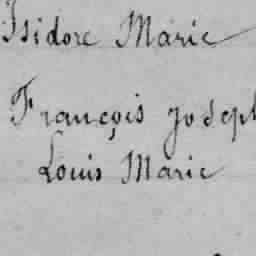 Isidore Marie
François Joseph
Louis Marie